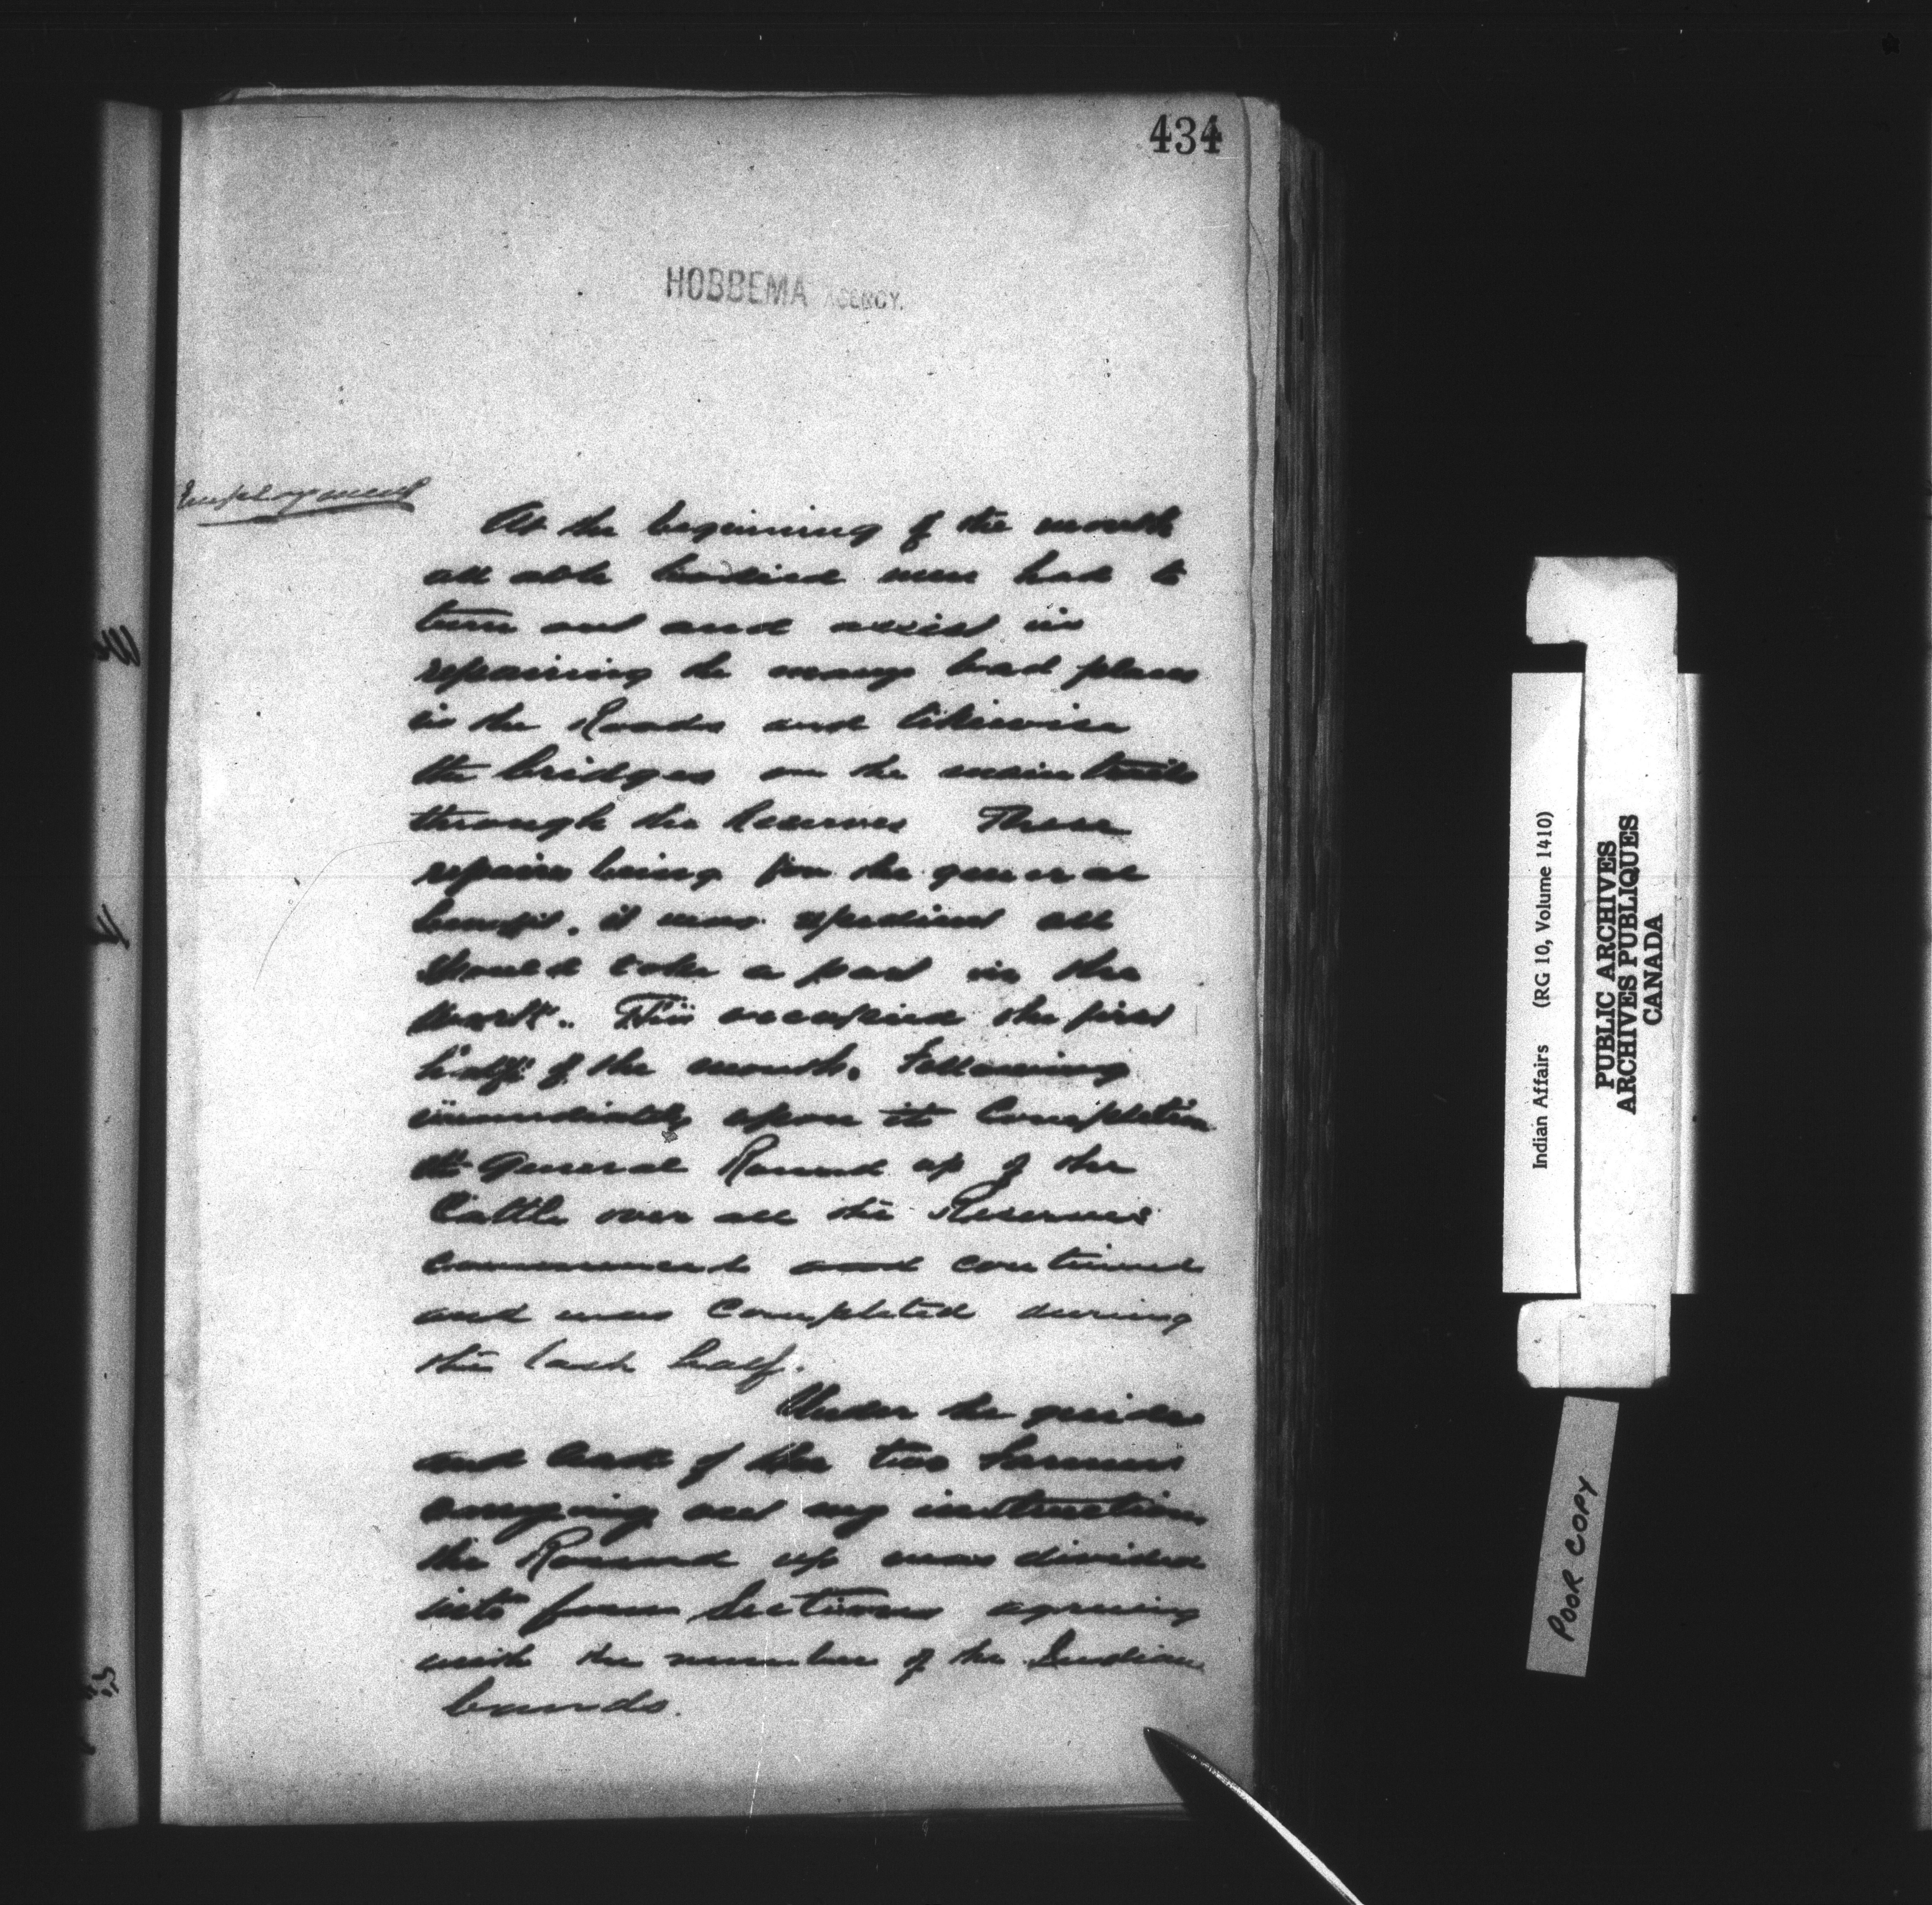 434
HOBBEMA AGENCY.
Employment
At the beginning of the month
all able bodied men had to
turn out and assist in
repairing the many bad places
in the Roads and likewise
the bridges on the main trails
through the Reserves These
repairs being for the general
benefit, it was expedient all
should take a part in the
work. This occupied the first
half of the month. Following
immediately upon its Completion
the General Round up of the
Cattle over all the Reserves
commenced and continued
and was Completed during
the last half.
Under the guidance
and of the two Farmers
and my instructions
the Round up was divided
into four Sections agreeing
with the number of the Indian
bands.
Indian Affairs (RG 10, Volume 1410)
PUBLIC ARCHIVES
ARCHIVES PUBLIQUES
CANADA
POOR COPY